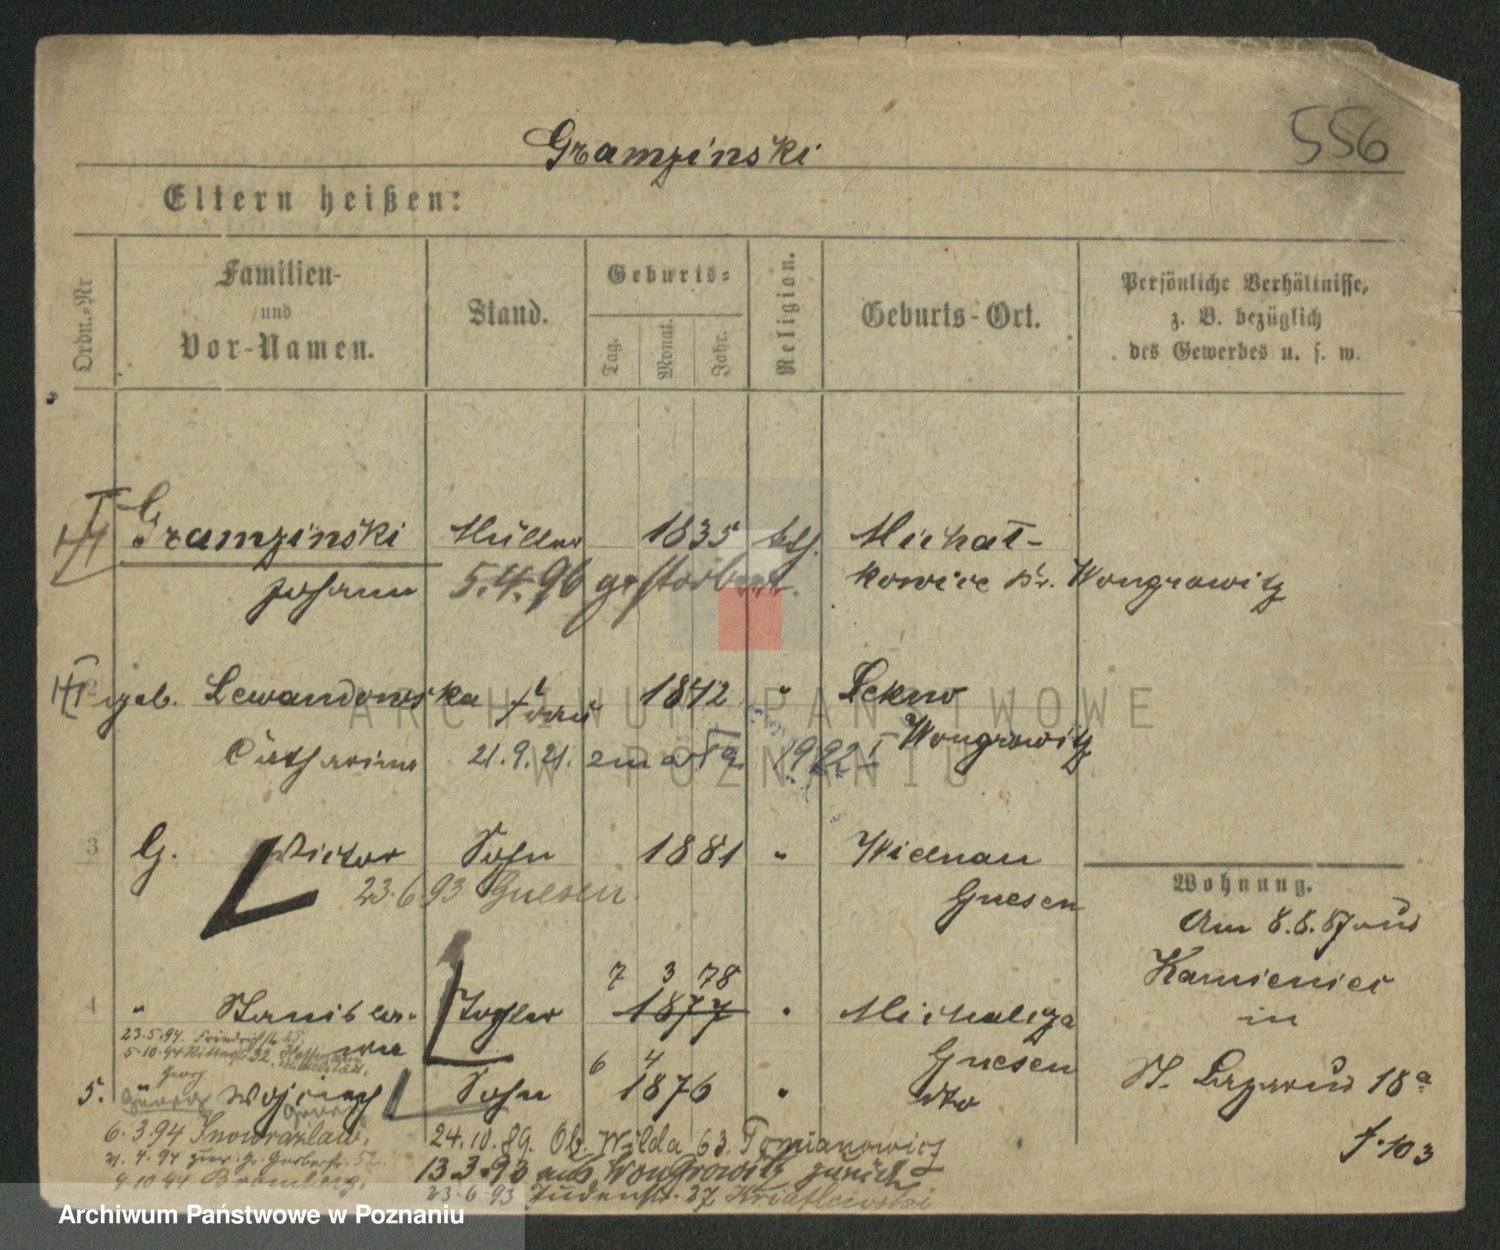 Gramzinski
556
Eltern heißen:
Ordn.-Nr
Familien-
und
Vor-Namen.
Stand.
Geburts-
Tag.
Monat.
Jahr.
Religion.
Geburts-Ort.
Persönliche Verhältnisse,
z. B. bezüglich
des Gewerbes u. s. w.
Gramzinski Müller 1835 kth. Michał-
Johann 5.4.96 gestorben. kowice Kr. Wongrowitz
2 geb. Lewandowska Frau 1842 " Lekno
Catharina 21.9.21. Wongrowitz
3 G. Victor Sohn 1881 " Widnau
23.6.93 Gnesen Gnesen
Wohnung.
Am 8.8.87 aus
Kamieniec
in
St. Lazarus 18a
7 3 78
4 " Stanisla- Tochter 1877 " Michalcza
wa Gnesen
23.5.94. Friedrichstr. 25.
5.10.94 Ritterstr. 32.
6 4
5. Wojciech Sohn 1876 " dto
Georg
6.3.94 Inowrazlaw. 24.10.89. Ob. Wilda 63. Tomianowicz
21.4.94 13.3.93 aus Wongrowitz zurück
9.10.94 Bromberg. 23.6.93 Judenstr. 27
f. 103
ARCHIWUM PAŃSTWOWE
W POZNANIU
Archiwum Państwowe w Poznaniu